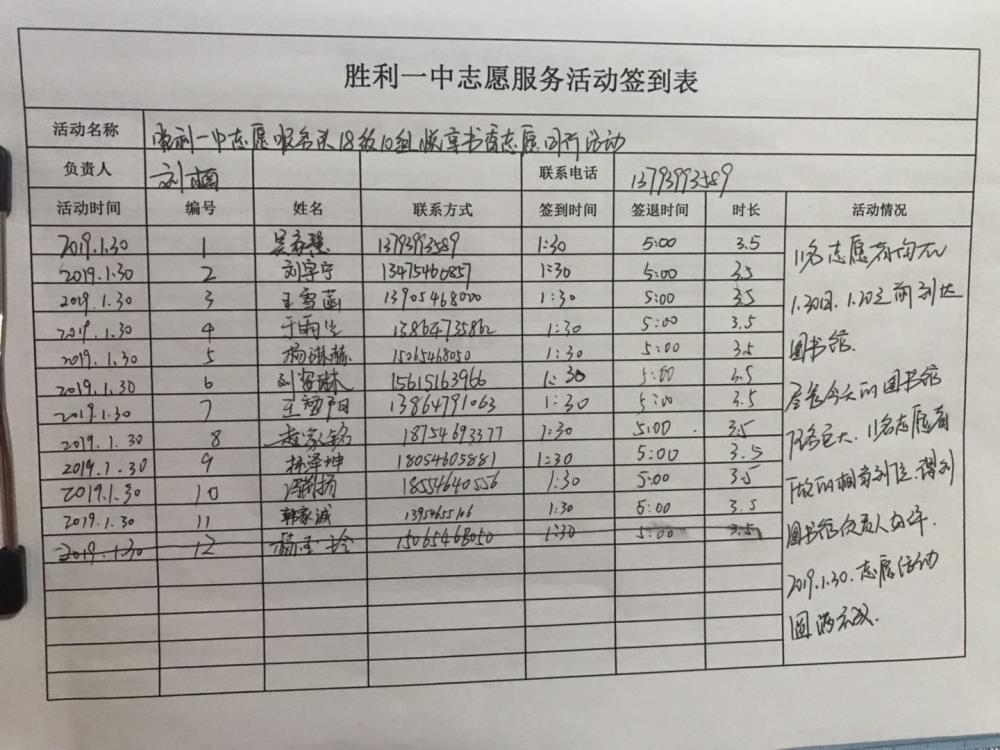 胜利一中志愿服务活动签到表
活动名称 胜利一中志愿服务队18级10组悦享书香志愿同行活动
负责人 刘 联系电话 13793993589
活动时间 编号 姓名 联系方式 签到时间 签退时间 时长 活动情况
2019.1.30 1 吴 13793993589 1:30 5:00 3.5
2019.1.30 2 刘宇宁 13475460857 1:30 5:00 3.5
2019.1.30 3 王雪菡 13905468000 1:30 5:00 3.5
2019.1.30 4 于雨 13864735862 1:30 5:00 3.5
2019.1.30 5 杨琳赫 15065468050 1:30 5:00 3.5
2019.1.30 6 刘 琳 15615163966 1:30 5:00 3.5
2019.1.30 7 王 阳 13864791063 1:30 5:00 3.5
2019.1.30 8 赵 铭 18754693377 1:30 5:00 3.5
2019.1.30 9 孙泽坤 18054605881 1:30 5:00 3.5
2019.1.30 10 扬 18554640556 1:30 5:00 3.5
2019.1.30 11 韩家诚 1:30 5:00 3.5
2019.1.30 12 15065468050 1:30 5:00 3.5
11名志愿者均于
1.30日 1.20之前到达
图书馆.
尽管今天的图书馆
任务巨大.11名志愿者
做的相当到位.得到
图书馆负责人好评.
2019.1.30.志愿活动
圆满完成.